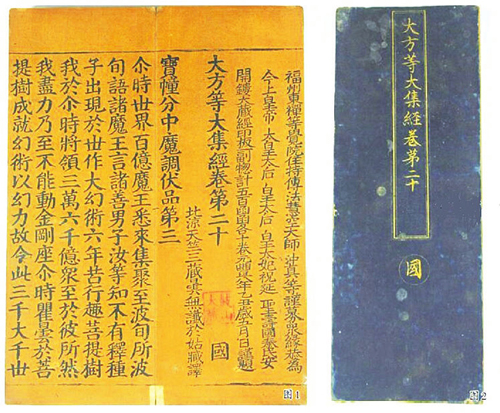 福州東禪等覺院住持傳法慧空大師沖真等謹募衆緣恭為
今上皇帝 太皇太后 皇太后 皇太妃祝延 聖壽國泰民安
開鏤大藏經印板一副計五百函函各十卷元豐八年乙丑歲五月日謹題
大方等大集經卷第二十 國
北涼天竺三藏曇無讖於姑臧譯
寶幢分中魔調伏品第三
尒時世界百億魔王悉來集聚至波旬所波
旬語諸魔王言諸善男子汝等知不有釋種
子出現於世作大幻術六年苦行趣菩提樹
我於尒時將領三萬六千億衆至於彼所然
我盡力乃至不能動金剛座尒時瞿曇於菩
提樹成就幻術以幻力故令此三千大千世
图1
大方等大集經卷第二十
國
图2